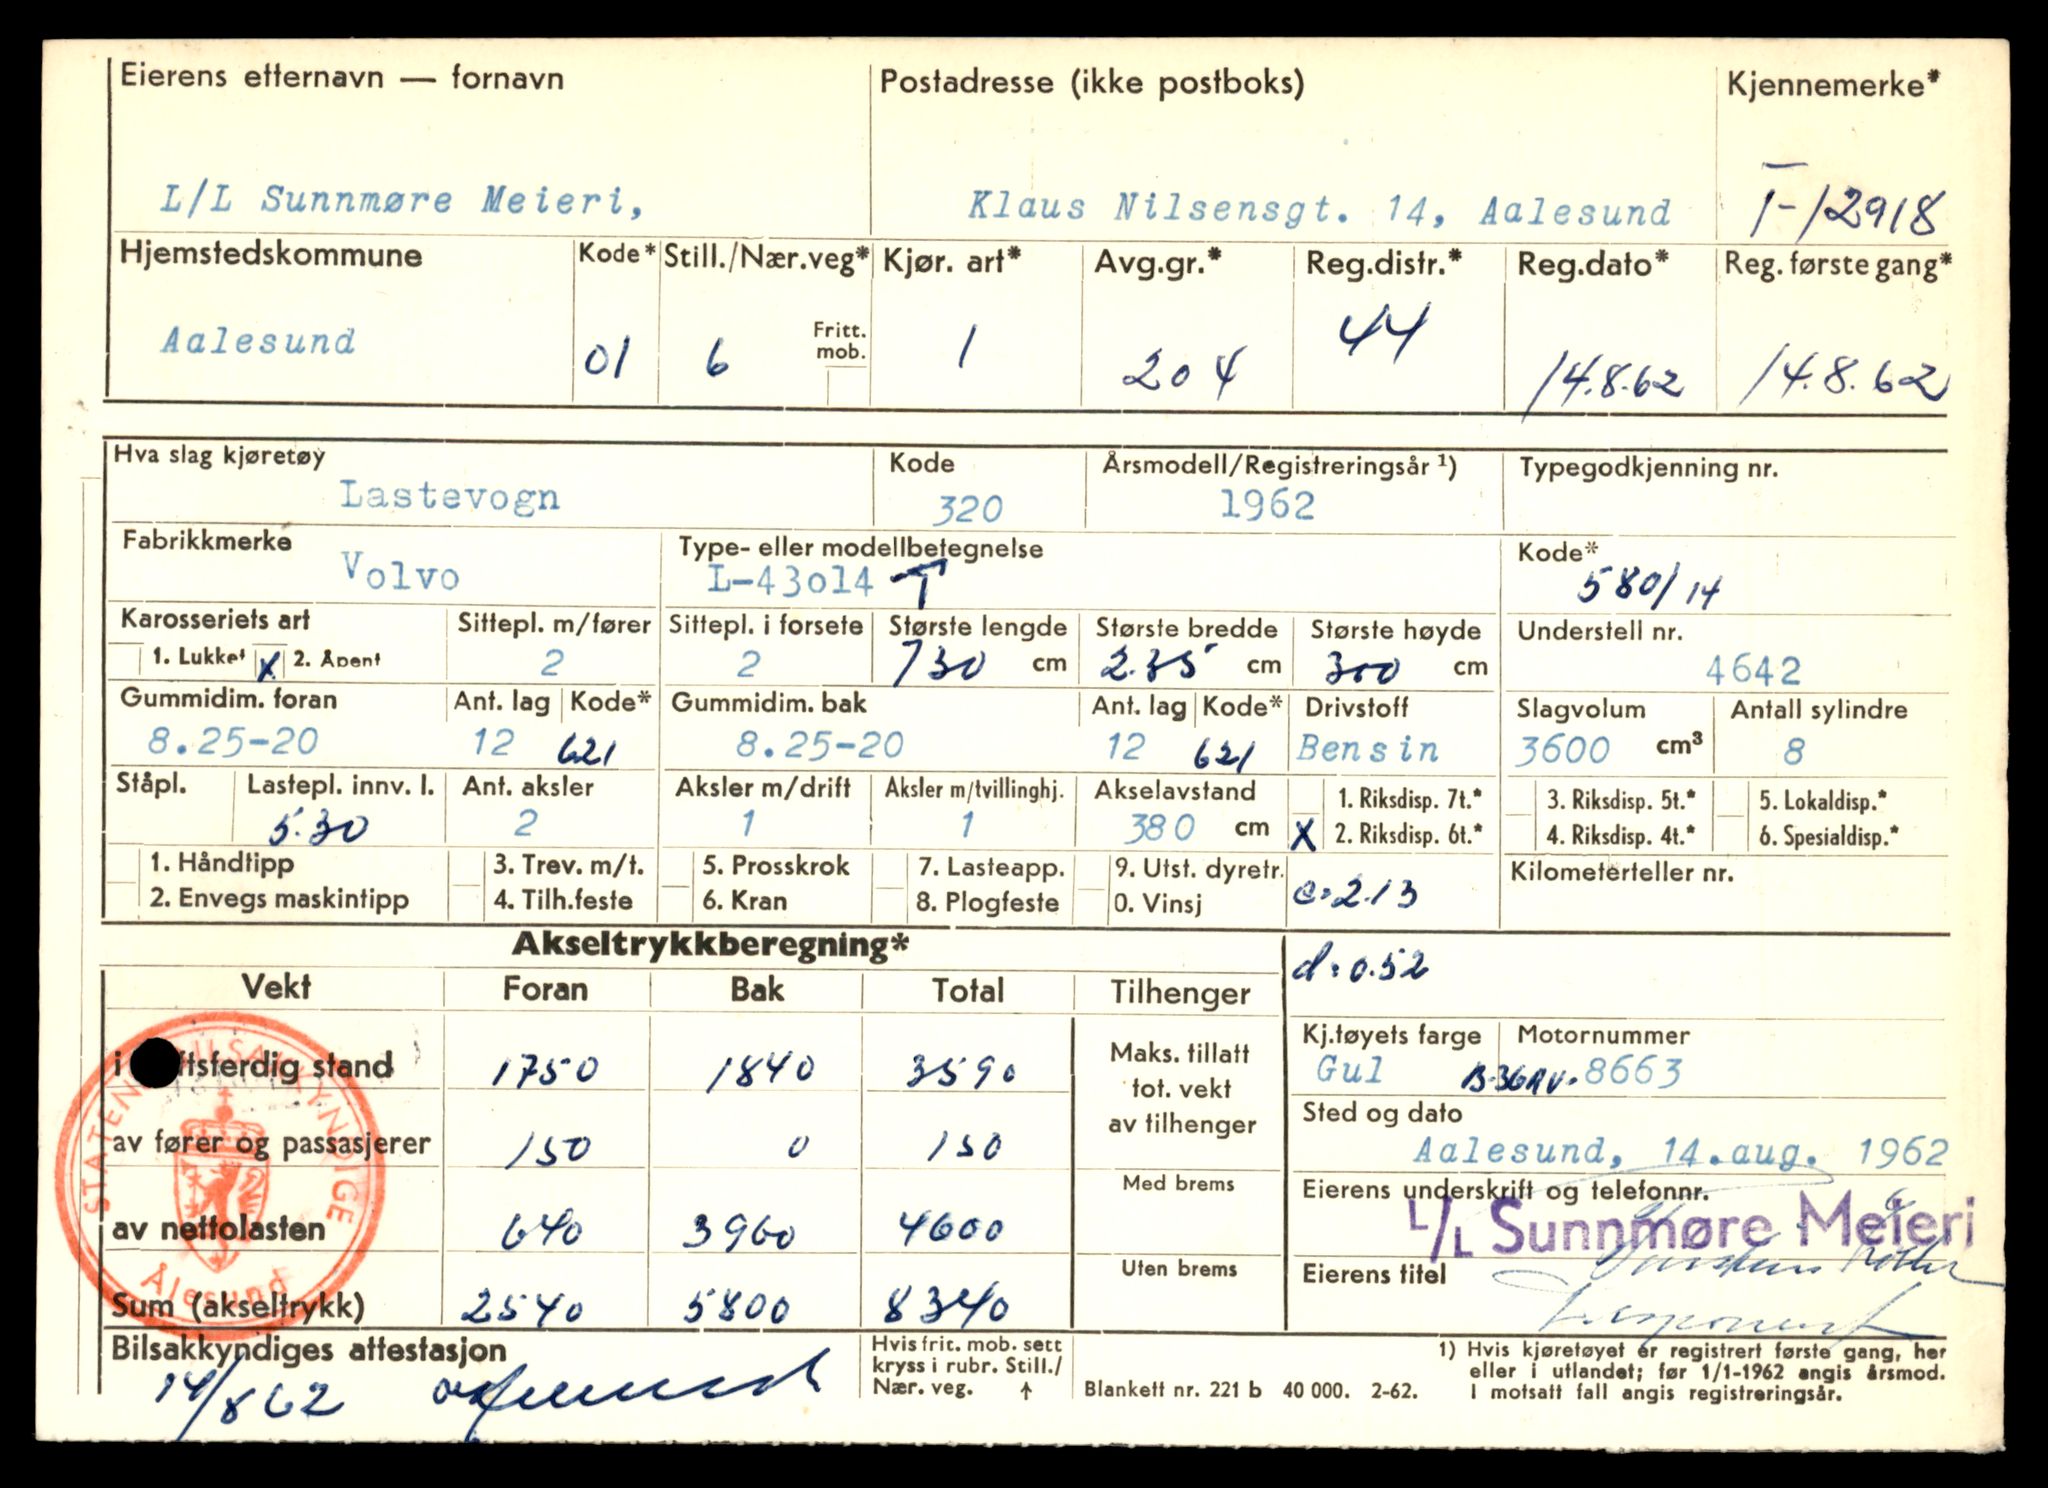 Eierens etternavn — fornavn Postadresse (ikke postboks) Kjennemerke*
L/L Sunnmøre Meieri, Klaus Nilsensgt. 14, Aalesund T-12918
Hjemstedskommune Kode* Still./Nær.veg* Kjør. art* Avg.gr.* Reg.distr.* Reg.dato* Reg. første gang*
Aalesund 01 6 Fritt. mob. 1 204 44 14.8.62 14.8.62
Hva slag kjøretøy Kode Årsmodell/Registreringsår ¹) Typegodkjenning nr.
Lastevogn 320 1962
Fabrikkmerke Type- eller modellbetegnelse Kode*
Volvo L-43o14 T 580/14
Karosseriets art Sittepl. m/fører Sittepl. i forsete Største lengde Største bredde Største høyde Understell nr.
1. Lukket X 2. Åpent 2 2 730 cm 2.35 cm 300 cm 4642
Gummidim. foran Ant. lag Kode* Gummidim. bak Ant. lag Kode* Drivstoff Slagvolum Antall sylindre
8.25-20 12 621 8.25-20 12 621 Bensin 3600 cm³ 8
Ståpl. Lastepl. innv. l. Ant. aksler Aksler m/drift Aksler m/tvillinghj. Akselavstand 1. Riksdisp. 7t.* 3. Riksdisp. 5t.* 5. Lokaldisp.*
5.30 2 1 1 380 cm X 2. Riksdisp. 6t.* 4. Riksdisp. 4t.* 6. Spesialdisp.*
1. Håndtipp 3. Trev. m/t. 5. Prosskrok 7. Lasteapp. 9. Utst. dyretr. Kilometerteller nr.
2. Envegs maskintipp 4. Tilh.feste 6. Kran 8. Plogfeste 0. Vinsj c=2.13
Akseltrykkberegning*
d=0.52
Vekt Foran Bak Total Tilhenger
Kj.tøyets farge Motornummer
i tsferdig stand 1750 1840 3590 Maks. tillatt tot. vekt av tilhenger
Gul B-36AV. 8663
Sted og dato
av fører og passasjerer 150 0 150
Aalesund, 14.aug. 1962
Med brems
Eierens underskrift og telefonnr.
L/L Sunnmøre Meieri
av nettolasten 640 3960 4600
Uten brems
Eierens titel
Disponent
Sum (akseltrykk) 2540 5800 8340
STATENS BILSAKKYNDIGE
Ålesund
Bilsakkyndiges attestasjon
14/8 62
Hvis frit. mob. sett
kryss i rubr. Still./
Nær. veg. ↑
Blankett nr. 221 b 40 000. 2-62.
1) Hvis kjøretøyet er registrert første gang, her
eller i utlandet; før 1/1-1962 angis årsmod.
I motsatt fall angis registreringsår.